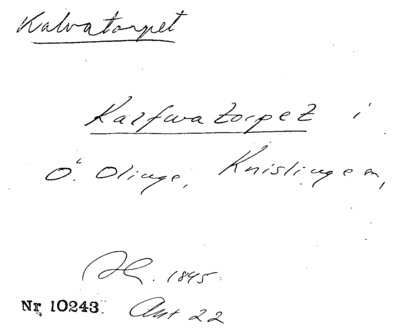 Kalvatorpet
Kalfwatorpet i
Ö. Olinge, Knislinge sn,
1845.
Nr 10243 Ant 22